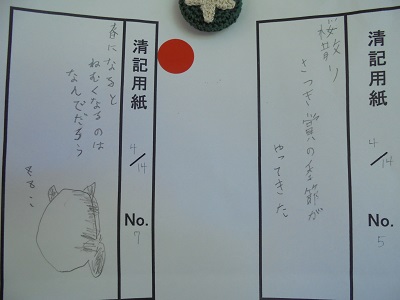 清記用紙
4/14
No.
5
桜散り
さつき賞の季節が
やってきた
清記用紙
4/14
No.
7
春になると
ねむくなるのは
なんでだろう
ももこ